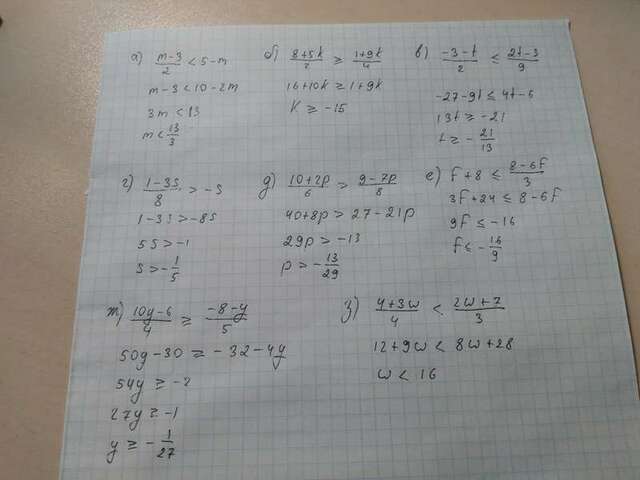 а) (m-3)/2 < 5-m
m-3 < 10-2m
3m < 13
m < 13/3
б) (8+5k)/2 ≥ (1+9k)/4
16+10k ≥ 1+9k
k ≥ -15
в) (-3-t)/2 ≤ (2t-3)/9
-27-9t ≤ 4t-6
13t ≥ -21
t ≥ -21/13
г) (1-3s)/8 > -s
1-3s > -8s
5s > -1
s > -1/5
д) (10+2p)/6 > (9-7p)/8
40+8p > 27-21p
29p > -13
p > -13/29
е) f+8 ≤ (8-6f)/3
3f+24 ≤ 8-6f
9f ≤ -16
f ≤ -16/9
ж) (10y-6)/4 ≥ (-8-y)/5
50y-30 ≥ -32-4y
54y ≥ -2
27y ≥ -1
y ≥ -1/27
з) (4+3w)/4 < (2w+7)/3
12+9w < 8w+28
w < 16